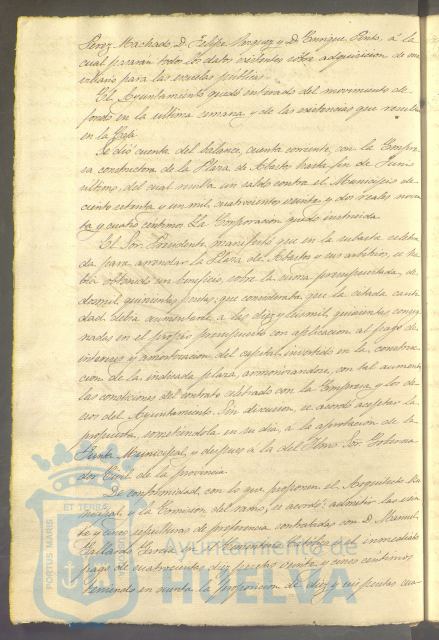 Perez Machado, D. Felipe Vazquez y D. Enrique Pinto, á la
cual pasaran todos los datos existentes sobre adquisicion de mo
viliario para las escuelas públicas.
El Ayuntamiento quedó enterado del movimiento de
fondos en la ultima semana y de las existencias que resultan
en la Caja.
Se dió cuenta del balance, cuenta corriente, con la Empre
sa constructora de la Plaza de Abastos hasta fin de Junio
ultimo, del cual resulta un saldo contra el Municipio de
ciento setenta y un mil, cuatrocientos y dos reales noven
ta y cuatro céntimos. La Corporacion quedó instruida.
El Sor. Presidente manifestó que en la subasta celebra
da para arrendar la Plaza de Abastos y sus arbitrios, se ha
bia obtenido un beneficio, sobre la suma presupuestada, de
dos mil quinientas pesetas: que consideraba que la citada canti
dad debia aumentarse á las diez y seis mil, quinientas consig
nadas en el propio presupuesto con aplicacion al pago de
intereses y amortizacion del capital invertido en la construc
cion de la indicada plaza, armonizandose, con tal aumento
las condiciones del contrato celebrado con la Empresa y los de
seos del Ayuntamiento. Sin discusion, se acordó aceptar la
propuesta, sometiéndola en su dia, á la aprobacion de la
Junta Municipal, y despues á la del Ilmo. Sor. Goberna
dor Civil de la provincia.
De conformidad, con lo que proponen el Arquitecto Mu
nicipal, y la Comision del ramo, se acordó: admitir las
te y cinco sepulturas de preferencia contratadas con D. Manuel
Gallardo Garcia en el Cementerio Católico y el inmediato
pago de cuatrocientas diez pesetas y cinco centimos
teniendo en cuenta la proposicion de diez y seis pesetas cua
PORTUS MARIS
ET TERRÆ
Ayuntamiento de
HUELVA